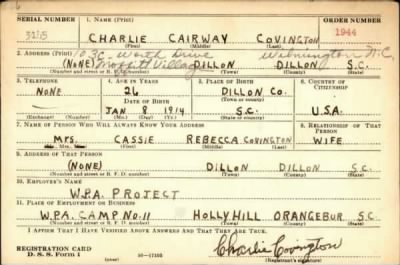 SERIAL NUMBER 1. NAME (Print) ORDER NUMBER
CHARLIE CAIRWAY COVINGTON 1944
(First) (Middle) (Last)
2. ADDRESS (Print) 103C Worth Drive Wilmington N.C.
(NONE) Moffitt Village DILLON DILLON S.C.
(Number and street or R. F. D. number) (Town) (County) (State)
3. TELEPHONE 4. AGE IN YEARS 5. PLACE OF BIRTH 6. COUNTRY OF CITIZENSHIP
NONE 26 DILLON CO.
DATE OF BIRTH (Town or county)
JAN 8 1914 S.C. U.S.A.
(Exchange) (Number) (Mo.) (Day) (Yr.) (State or country)
7. NAME OF PERSON WHO WILL ALWAYS KNOW YOUR ADDRESS 8. RELATIONSHIP OF THAT PERSON
MRS. CASSIE REBECCA COVINGTON WIFE
(Mr., Mrs., Miss) (First) (Middle) (Last)
9. ADDRESS OF THAT PERSON
(NONE) DILLON DILLON S.C.
(Number and street or R. F. D. number) (Town) (County) (State)
10. EMPLOYER'S NAME
W.P.A. PROJECT
11. PLACE OF EMPLOYMENT OR BUSINESS
W.P.A. CAMP NO. 11 HOLLY HILL ORANGEBUR S.C.
(Number and street or R. F. D. number) (Town) (County) (State)
I AFFIRM THAT I HAVE VERIFIED ABOVE ANSWERS AND THAT THEY ARE TRUE.
REGISTRATION CARD
D. S. S. Form 1 16—17105 Charlie Covington
(Registrant's signature)